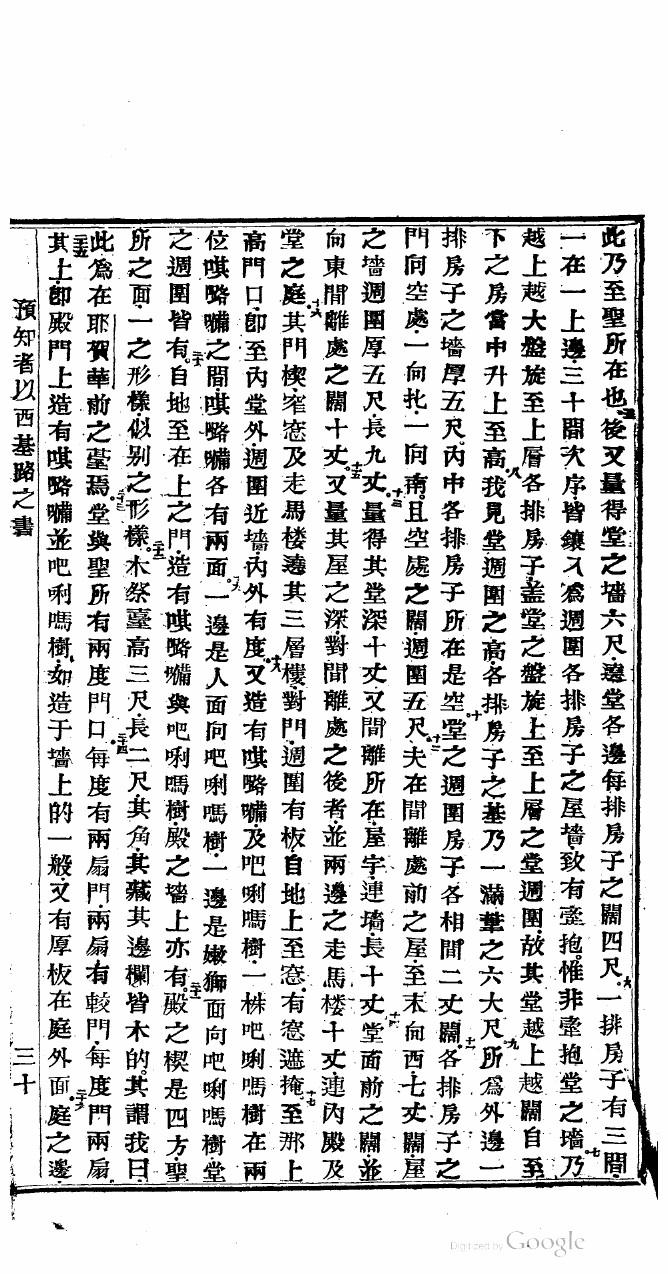 此乃至聖所在也。五後又量得堂之墻六尺遶堂各邊每排房子之闊四尺。六一排房子有三間
一在一上邊三十間次序皆鑲入爲週圍各排房子之屋墻致有壼抱惟非壼抱堂之墻乃七
越上越大盤旋至上層各排房子盖堂之盤旋上至上層之堂週圍故其堂越上越闊自至
下之房當中升上至高。八我見堂週圍之高各排房子之基乃一滿葦之六大尺。九所爲外邊一
排房子之墻厚五尺內中各排房子所在是空。十堂之週圍房子各相間二丈闊。十一各排房子之
門向空處一向北一向南且空處之闊週圍五尺。十二夫在間離處前之屋至末向西七丈闊屋
之墻週圍厚五尺長九丈。十三量得其堂深十丈又間離所在屋宇連墻長十丈。十四堂面前之闊並
向東間離處之闊十丈。十五又量其屋之深對間離處之後者並兩邊之走馬楼十丈連內殿及
堂之庭。十六其門楔窄窓及走馬楼遶其三層樓對門週圍有板自地上至窓有窓遮掩。十七至那上
高門口卽至內堂外週圍近墻內外有度。十八又造有唭咯嘣及吧唎嗎樹一株吧唎嗎樹在兩
位唭咯嘣之間唭咯嘣各有兩面。十九一邊是人面向吧唎嗎樹一邊是嫩獅面向吧唎嗎樹堂
之週圍皆有。二十自地至在上之門造有唭咯嘣與吧唎嗎樹殿之墻上亦有。二十一殿之楔是四方聖
所之面一之形樣似别之形樣。二十二木祭臺高三尺長二尺其角其藏其邊欄皆木的其謂我曰
此爲在耶賀華前之臺焉。二十三堂與聖所有兩度門口。二十四每度有兩扇門兩扇有較門每度門兩扇
二十五其上卽殿門上造有唭咯嘣並吧唎嗎樹如造于墻上的一般又有厚板在庭外面。二十六庭之邊
預知者以西基路之書 三十
Digitized by Google